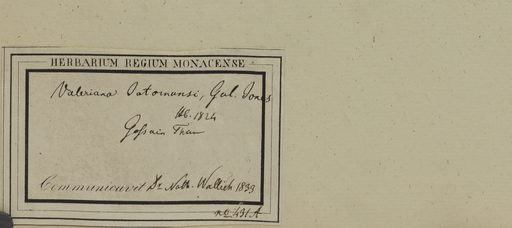 HERBARIUM REGIUM MONACENSE
Valeriana Jatamansi, Gul. Jones
Hb. 1824
Gossain Than
Communicavit Dr. Nath. Wallich 1833
no 431.A